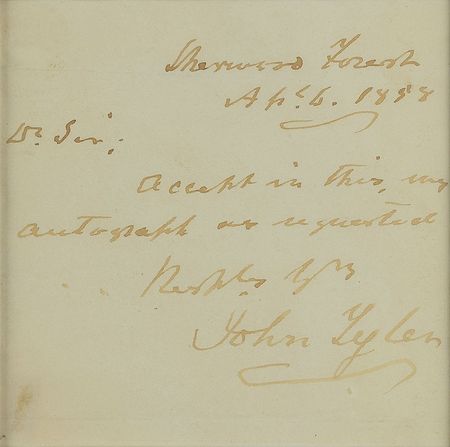 Sherwood Forest
Apl. 6. 1858
Dr Sir;
Accept in this, my
autograph as requested
Respkly Yrs
John Tyler